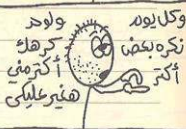 وكل يوم
نكره بعض
أكتر
ولا حد
كرهك
أكتر مني
هغير عليكي